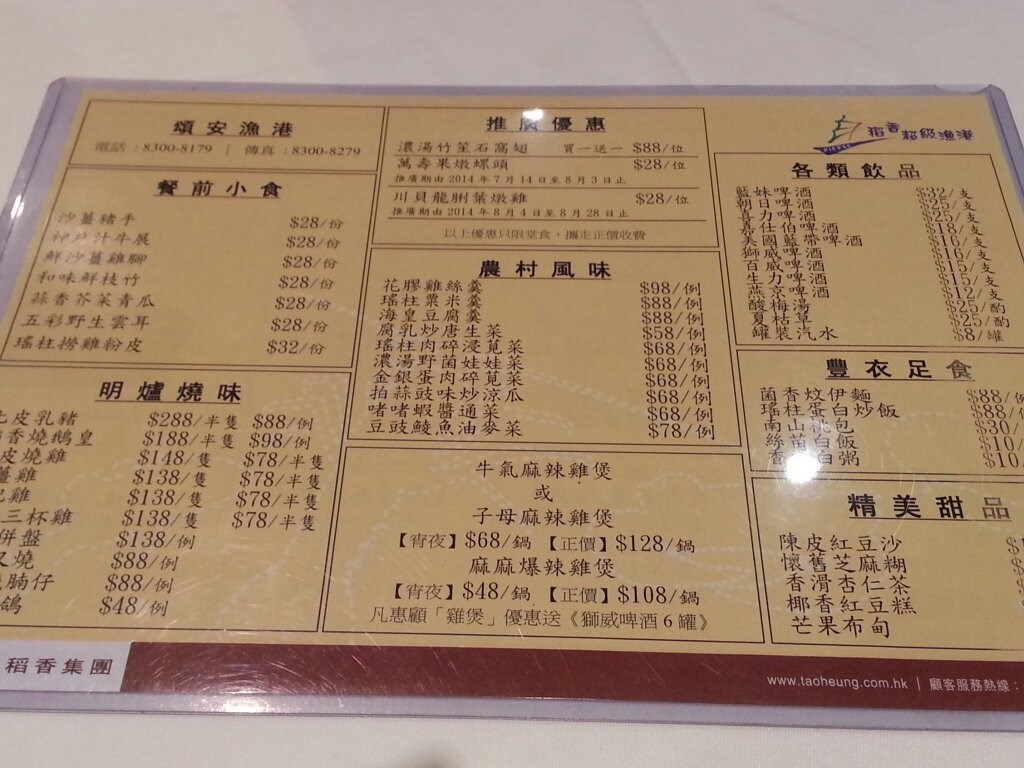 頌安漁港
電話:8300-8179 | 傳真:8300-8279
餐前小食
沙薑豬手 $28/份
神戶汁牛展 $28/份
鮮沙薑雞腳 $28/份
和味鮮枝竹 $28/份
蒜香芥菜青瓜 $28/份
五彩野生雲耳 $28/份
瑤柱撈雞粉皮 $32/份
明爐燒味
皮乳豬 $288/半隻 $88/例
香燒鵝皇 $188/半隻 $98/例
皮燒雞 $148/隻 $78/半隻
薑雞 $138/隻 $78/半隻
雞 $138/隻 $78/半隻
三杯雞 $138/隻 $78/半隻
併盤 $138/例
叉燒 $88/例
腩仔 $88/例
鴿 $48/例
推廣優惠
濃湯竹笙石窩翅 買一送一 $88/位
萬壽果燉螺頭 $28/位
推廣期由2014年7月14日至8月3日止
川貝龍脷葉燉雞 $28/位
推廣期由2014年8月4日至8月28日止
以上優惠只限堂食,攜走正價收費
農村風味
花膠雞絲羹 $98/例
瑤柱粟米羹 $88/例
海皇豆腐羹 $88/例
腐乳炒唐生菜 $58/例
瑤柱肉碎浸莧菜 $68/例
濃湯野菌娃娃菜 $68/例
金銀蛋肉碎莧菜 $68/例
拍蒜豉味炒涼瓜 $68/例
啫啫蝦醬通菜 $68/例
豆豉鯪魚油麥菜 $78/例
牛氣麻辣雞煲
或
子母麻辣雞煲
【宵夜】$68/鍋 【正價】$128/鍋
麻麻爆辣雞煲
【宵夜】$48/鍋 【正價】$108/鍋
凡惠顧「雞煲」優惠送《獅威啤酒6罐》
稻香超級漁港
各類飲品
藍妹啤酒 $32/支
朝日啤酒 $25/支
喜力啤酒 $25/支
嘉士伯啤酒 $18/支
美國藍帶啤酒 $16/支
獅威啤酒 $15/支
百威啤酒 $15/支
生力啤酒 $15/支
燕京啤酒 $12/支
酸梅湯 $25/酌
夏枯草 $25/酌
罐裝汽水 $8/罐
豐衣足食
菌香炆伊麵 $88/例
瑤柱蛋白炒飯 $88/
南山桃包 $30/
絲苗白飯 $10/
香 白粥 $10
精美甜品
陳皮紅豆沙
懷舊芝麻糊
香滑杏仁茶
椰香紅豆糕
芒果布甸
稻香集團
www.taoheung.com.hk | 顧客服務熱線: